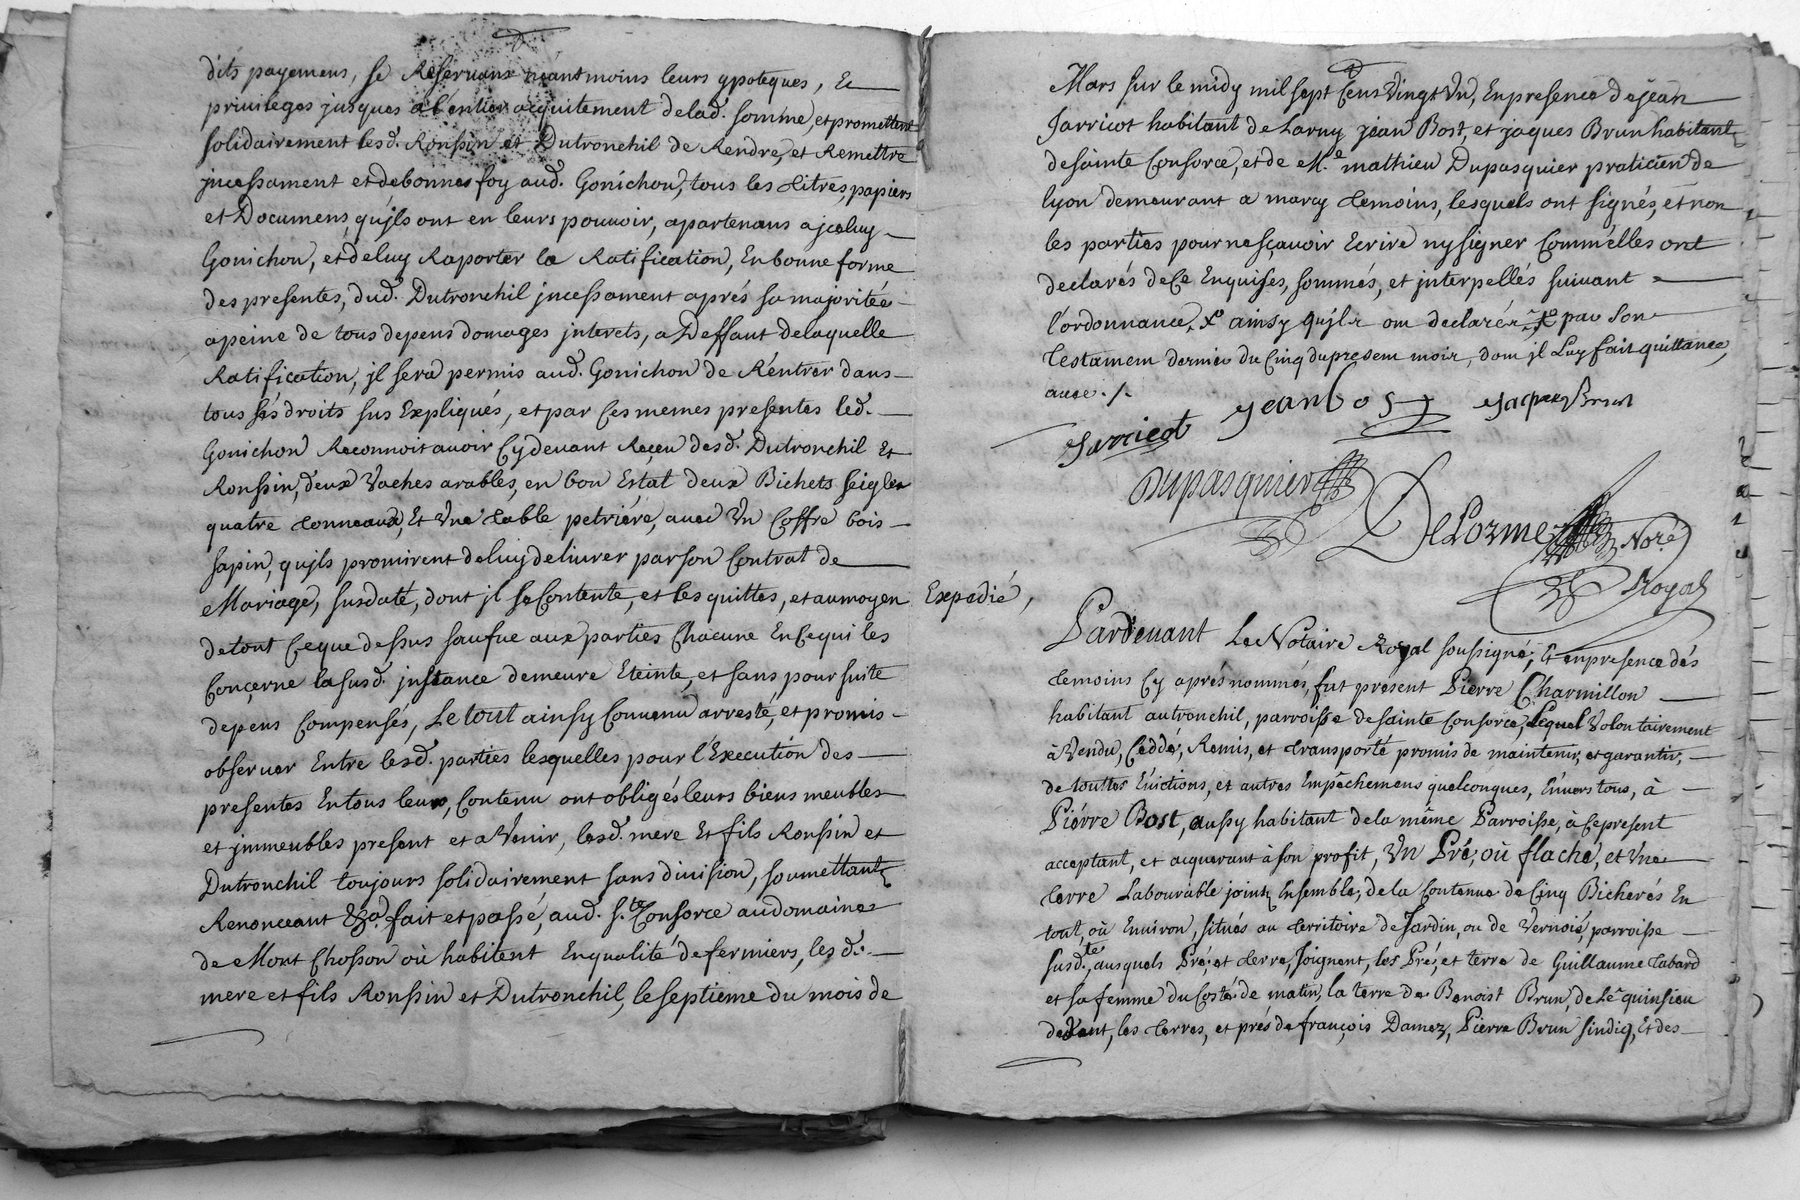 dits payemens, se Reservant néantmoins leurs ypoteques, Et
privileges jusques a l'entier acquitement de lad. somme, et promettent
solidairement lesd. Ronssin et Dutronchil de Rendre, et Remettre
jncessament et de bonne foy aud. Gonichon, tous les titres, papiers
et Documens, qu'jls ont en leurs pouvoir, apartenans a jceluy
Gonichon, et de luy Raporter la Ratification, En bonne forme
des presentes, dud. Dutronchil jncessament aprés sa majoritée
a peine de tous depens domages jnterets, a Deffaut de laquelle
Ratification, jl sera permis aud. Gonichon de Réntrer dans
tous sés droits sus Expliqués, et par Ces memes presentes led.
Gonichon Reconnoit avoir Cy devant Reçeu desd. Dutronchil Et
Ronssin, deux Vaches arables, en bon Estat deux Bichets seigle
quatre tonneaux, Et Vne table petriére, avec Vn Coffre bois
sapin, qu'jls promirent de luy delivrer par son Contrat de
Mariage, susdaté, dont jl se Contente, et les quittes, et au moyen
de tout Ce que dessus sauf ue aux parties Chacune En Ce qui les
Conçerne la susd. jnstance demeure Eteinte, et sans poursuite
depens Compensés, Le tout ainsy Convenu arresté, et promis
observer Entre lésd. parties lesquelles pour l'Execution des
presentes En tous leurs, Contenu ont obligés leurs biens meubles
et jmmeubles present et a Venir, lesd. mere Et fils Ronssin et
Dutronchil toujours solidairement sans division, soumettant
Renonceant &a. fait et passé, aud. s.te Consorce au domaine
de Mont Chosson où habitent En qualité de fermiers, les d.
mere et fils Ronssin et Dutronchil, le septieme du mois de
Mars sur le midy mil sept Cens Vingt Vn, En presence de jean
Jarricot habitant de Larny jean Bost, et jaques Brun habitant
de sainte Consorce, et de M.e mathieu Dupasquier praticien de
lyon demeurant a marcy temoins, lesquels ont signés, et non
les parties pour ne sçavoir Ecrire ny signer Comm'elles ont
declarés de Ce Enquises, sommés, et jnterpellés suivant
l'ordonnance, X ainsy qu'jls ont declaré X par son
testament dernier du Cinq du present mois, dont jl Luy fait quittance,
avec ./.
Jarricot jean bost jacques Brun
Dupasquier
DeLorme No.re
Royal
Expedié,
Pardevant Le Notaire Royal soussigné, Et en presence dés
temoins Cy aprés nommés, fut present Pierre Charmillon
habitant au tronchil, parroisse de sainte Consorce, Lequel Volontairement
à Vendu, Ceddé, Remis, et transporté promis de maintenir, et garantir,
de touttes Evictions, et autres Empêchemens quelconques, Envers tous, à
Piérre Bost, aussy habitant de la même Parroisse, à Ce present
acceptant, et acquerant à son profit, Vn Pré, où flaché, et Vne
terre Labourable joints Ensemble, de la Contenue de Cinq Bicherés En
tout, où Environ, situés au territoire de Jardin, ou de Vernoié, parroisse
susd.te, ausquels Pré, et terre, Joignent, les Prés, et terre de Guillaume tabard
et sa femme du Costé de matin, la terre de Benoist Brun, de Lé quinsieu
de Vent, les terres, et prés de françois Damez, Pierre Brun sindiq, Et des